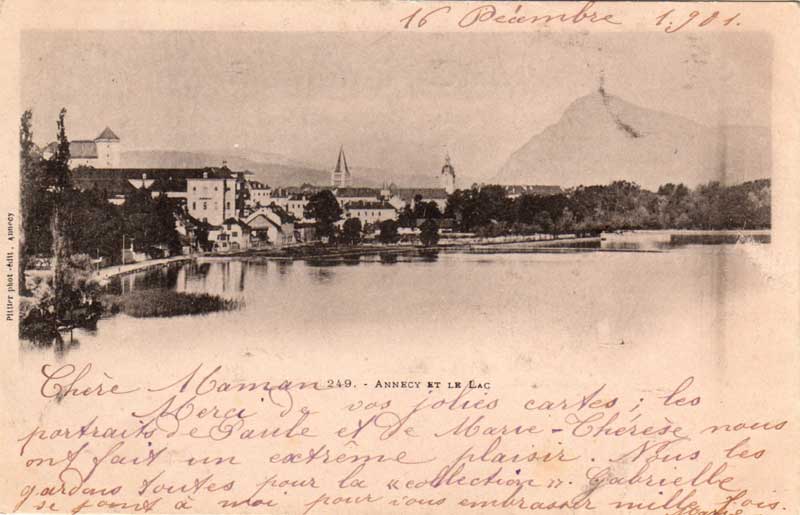 16 Décembre 1901.
Pittier phot-édit. Annecy
249. - ANNECY ET LE LAC
Chère Maman
Merci de vos jolies cartes ; les
portraits de Paule et de Marie-Thérèse nous
ont fait un extrême plaisir. Nous les
gardons toutes pour la « collection ». Gabrielle
se joint à moi pour vous embrasser mille fois.
Marie